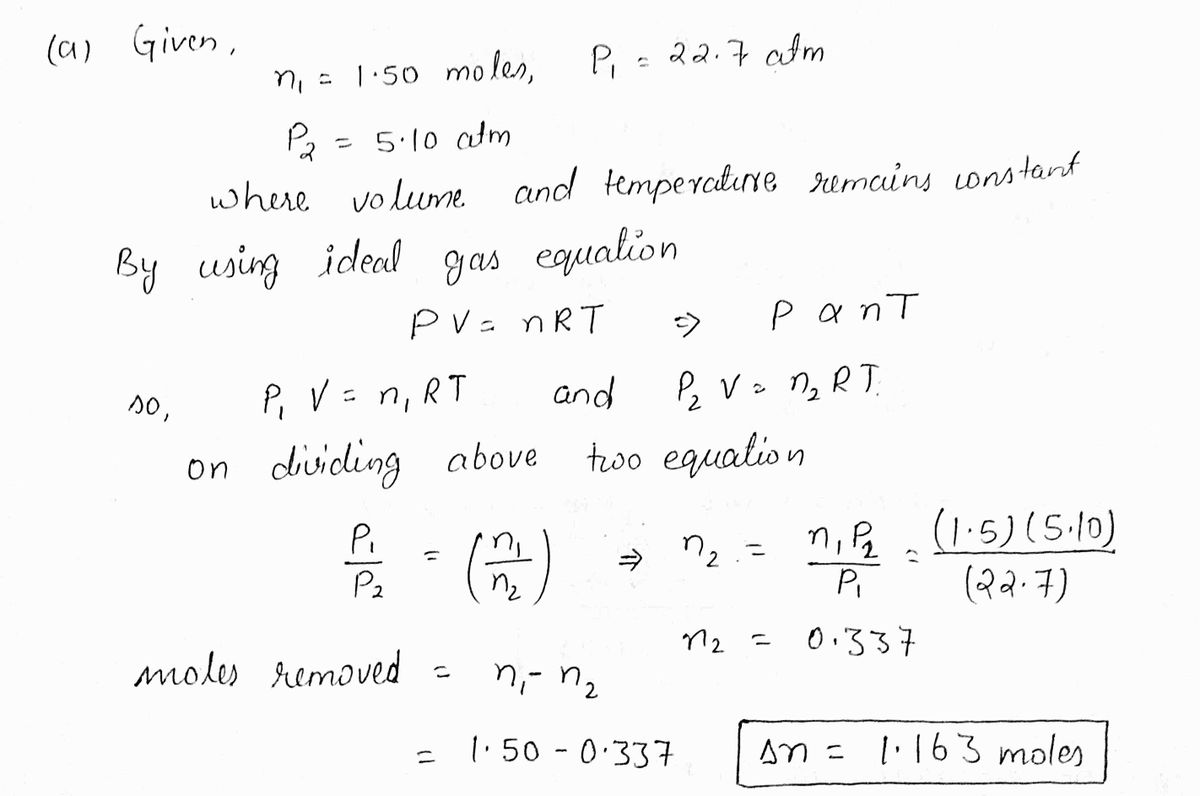 (a) Given,
n₁ = 1.50 moles, P₁ = 22.7 atm
P₂ = 5.10 atm
where volume and temperature remains constant
By using ideal gas equation
PV = nRT ⇒ P α nT
so, P₁ V = n₁ RT and P₂ V = n₂ RT.
on dividing above two equation
P₁/P₂ = (n₁/n₂) ⇒ n₂ = n₁P₂/P₁ = (1.5)(5.10)/(22.7)
n₂ = 0.337
moles removed = n₁ - n₂
= 1.50 - 0.337 Δn = 1.163 moles